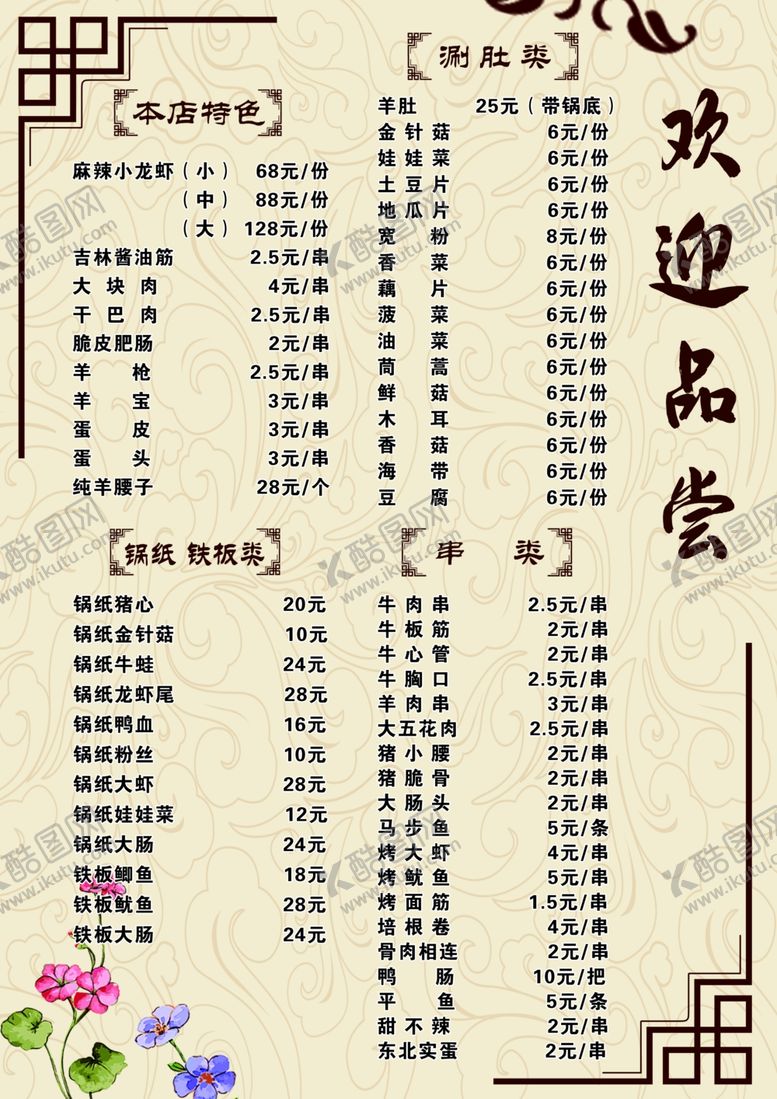 本店特色
麻辣小龙虾（小） 68元/份
（中） 88元/份
（大） 128元/份
吉林酱油筋 2.5元/串
大块肉 4元/串
干巴肉 2.5元/串
脆皮肥肠 2元/串
羊枪 2.5元/串
羊宝 3元/串
蛋皮 3元/串
蛋头 3元/串
纯羊腰子 28元/个
涮肚类
羊肚 25元（带锅底）
金针菇 6元/份
娃娃菜 6元/份
土豆片 6元/份
地瓜片 6元/份
宽粉 8元/份
香菜 6元/份
藕片 6元/份
菠菜 6元/份
油菜 6元/份
茼蒿 6元/份
鲜菇 6元/份
木耳 6元/份
香菇 6元/份
海带 6元/份
豆腐 6元/份
欢迎品尝
锅纸 铁板类
锅纸猪心 20元
锅纸金针菇 10元
锅纸牛蛙 24元
锅纸龙虾尾 28元
锅纸鸭血 16元
锅纸粉丝 10元
锅纸大虾 28元
锅纸娃娃菜 12元
锅纸大肠 24元
铁板鲫鱼 18元
铁板鱿鱼 28元
铁板大肠 24元
串类
牛肉串 2.5元/串
牛板筋 2元/串
牛心管 2元/串
牛胸口 2.5元/串
羊肉串 3元/串
大五花肉 2.5元/串
猪小腰 2元/串
猪脆骨 2元/串
大肠头 2元/串
马步鱼 5元/条
烤大虾 4元/串
烤鱿鱼 5元/串
烤面筋 1.5元/串
培根卷 4元/串
骨肉相连 2元/串
鸭肠 10元/把
平鱼 5元/条
甜不辣 2元/串
东北实蛋 2元/串
酷图网
www.ikutu.com